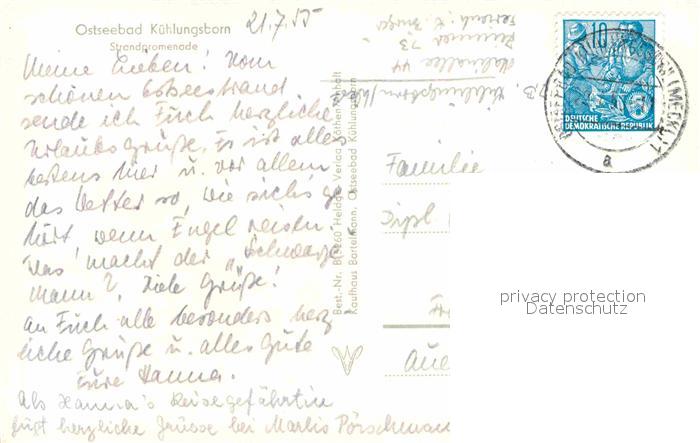 Ostseebad Kühlungsborn
Strandpromenade
21.7.55
Meine Lieben! Vom
schönen Ostseestrand
sende ich Euch herzliche
Urlaubsgrüße. Es ist alles
bestens hier u. vor allem
das Wetter so, wie sich's ge
hört, wenn Engel reisen.
Was macht der „Schwarze
Mann"? Viele Grüße!
An Euch alle besonders herz
liche Grüße u. alles Gute
Eure Hanna.
Als Hanna's Reisegefährtin
herzliche Grüsse bei Marlis Pörschman
Best.-Nr. B 3260 Heldge-Verlag Köthen-Anhalt
Kaufhaus Bartelmann, Ostseebad Kühlungsborn
Zimmer 73
Kühlungsborn
Familie
Dipl
Aue
10
DEUTSCHE
DEMOKRATISCHE REPUBLIK
(MECKL) 1
a
privacy protection
Datenschutz